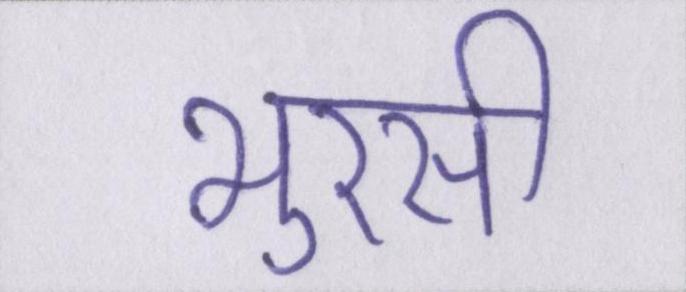 भुरसी